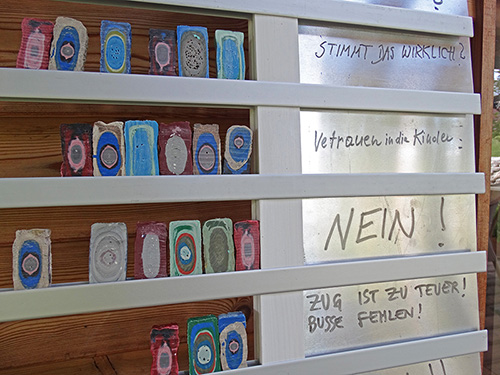 STIMMT DAS WIRKLICH?
Vetrauen in die Kinder!
NEIN!
ZUG IST ZU TEUER!
BUSSE FEHLEN!